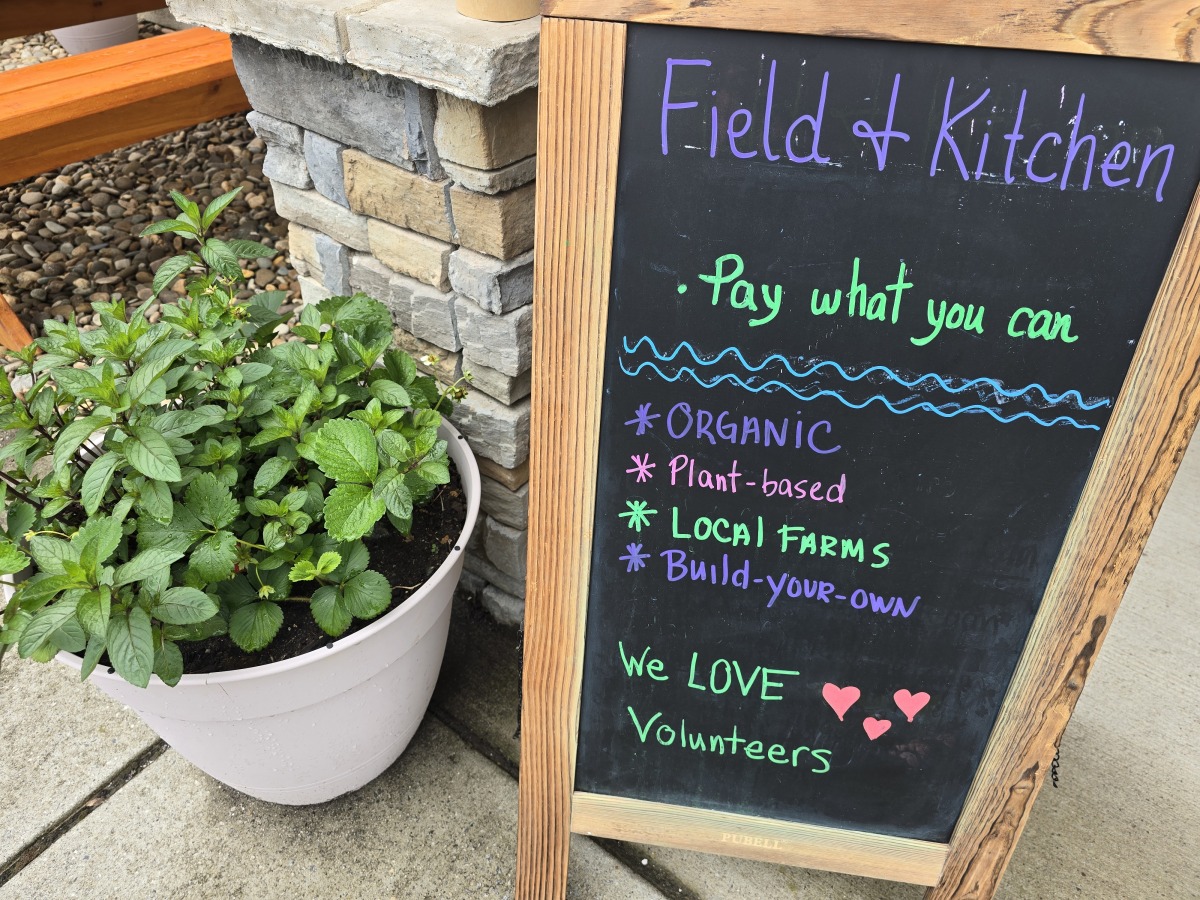 Field & Kitchen
. Pay what you can
* ORGANiC
* Plant-based
* LOCAl FARMS
* Build-YOUR-OWN
We LOVE
Volunteers
PUBELL